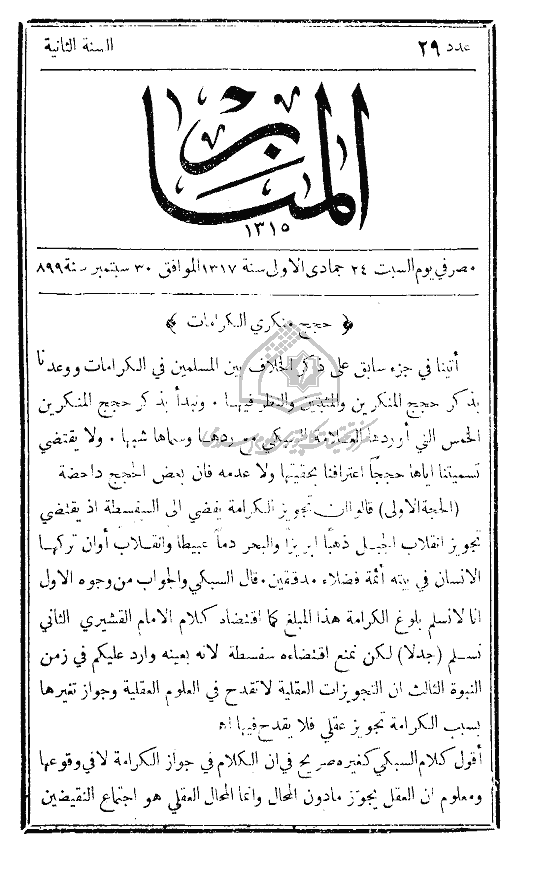 عدد ٢٩
االسنة الثانية
المنار
١٣١٥
مصر في يوم السبت ٢٤ جمادى الاولى سنة ١٣١٧ الموافق ٣٠ سبتمبر سنة ٨٩٩
﴿ حجج منكري الكرامات ﴾
أتينا في جزء سابق على ذكر الخلاف بين المسلمين في الكرامات ووعدنا
بذكر حجج المنكرين والمثبتين والنظر فيها ٠ ونبدأ بذكر حجج المنكرين
الخمس التي أوردها العلامة السبكي مع ردها وسماها شبها ٠ ولا يقتضي
تسميتنا اياها حججاً اعترافنا بحقيتها ولا عدمه فان بعض الحجج داحضة
(الحجة الاولى) قالوا ان تجويز الكرامة يفضي الى السفسطة اذ يقتضي
تجويز انقلاب الجبل ذهباً ابريزاً والبحر دماً عبيطاً وانقلاب أوان تركها
الانسان في بيته أئمة فضلاء مدققين ٠ قال السبكي والجواب من وجوه الاول
انا لا نسلم بلوغ الكرامة هذا المبلغ كما اقتضاه كلام الامام القشيري الثاني
نسلم (جدلا) لكن نمنع اقتضاءه سفسطة لانه بعينه وارد عليكم في زمن
النبوة الثالث ان التجويزات العقلية لا تقدح في العلوم العقلية وجواز تغيرها
بسبب الكرامة تجويز عقلي فلا يقدح فيها اه
أقول كلام السبكي كغيره صريح في ان الكلام في جواز الكرامة لا في وقوعها
ومعلوم ان العقل يجوّز مادون المحال وانما المحال العقلي هو اجتماع النقيضين